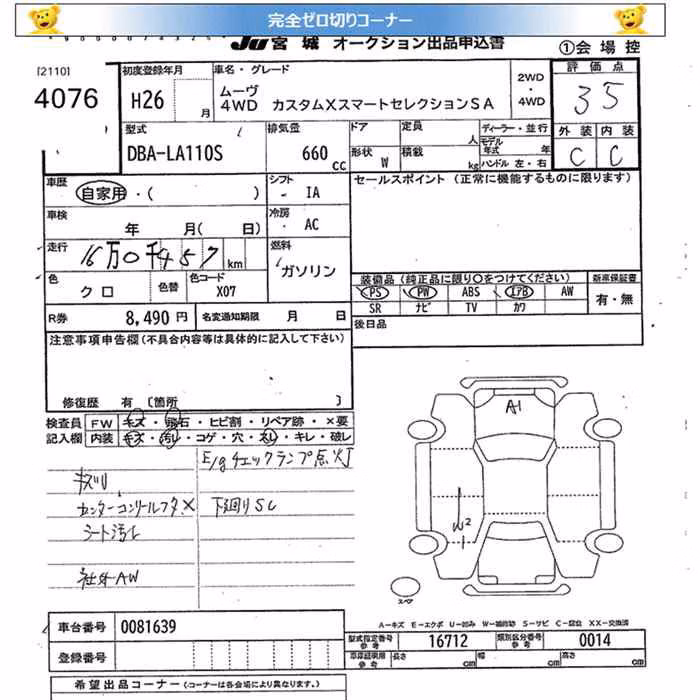 完全ゼロ切りコーナー
JU 宮 城 オークション出品申込書 ①会 場 控
[2110]
4076
初度登録年月
H26 月
車名・グレード
ムーヴ
4WD カスタムXスマートセレクションSA
2WD
・
4WD
評 価 点
3.5
外 装 内 装
C C
型式
DBA-LA110S
排気量
660 CC
ドア
形状 W
定員 人
積載 kg
ディーラー・並行
モデル年式 年
ハンドル 左・右
車歴
自家用・( )
シフト
- IA
セールスポイント (正常に機能するものに限ります)
車検
年 月( 日)
冷房
AC
走行
16万0千457 km
燃料
ガソリン
色
クロ
色替
色コード
X07
装備品 (純正品に限り○をつけてください)
PS PW ABS エアB AW
SR ナビ TV カワ
新車保証書
有・無
R券 8,490 円
名変通知期限 月 日
後日品
注意事項申告欄 (不具合内容等は具体的に記入して下さい)
修復歴 有 〔箇所 〕
検査員記入欄
FW キズ・飛石・ヒビ割・リペア跡・×要
内装 キズ・汚レ・コゲ・穴・スレ・キレ・破レ
E/gチェックランプ点灯
キズ凹
センターコンソールフタ× 下廻りSC
シート汚レ
社外AW
A1
W2
スペア
A−キズ E−エクボ U−凹み W−補修跡 S−サビ C−腐食 XX−交換済
車台番号 0081639
登録番号
型式指定番号 参考 16712
類別区分番号 参考 0014
車庫証明用 参考 長さ cm 幅 cm 高さ cm
希望出品コーナー (コーナーは各会場により異なります。)